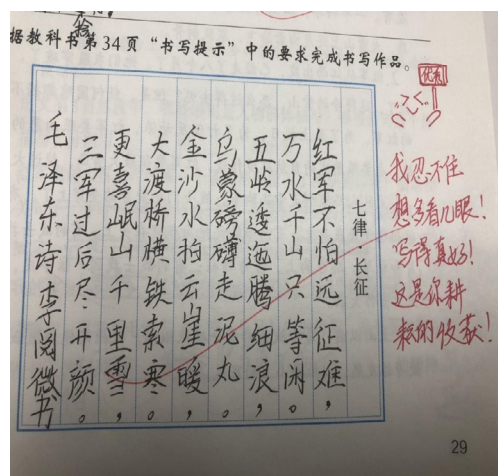 据教科书第34页“书写提示”中的要求完成书写作品。
七律·长征
红军不怕远征难，
万水千山只等闲。
五岭逶迤腾细浪，
乌蒙磅礴走泥丸。
金沙水拍云崖暖，
大渡桥横铁索寒。
更喜岷山千里雪，
三军过后尽开颜。
毛泽东诗李阅微书
优秀
我忍不住
想多看几眼！
写得真好！
这是你耕
耘的收获！
29